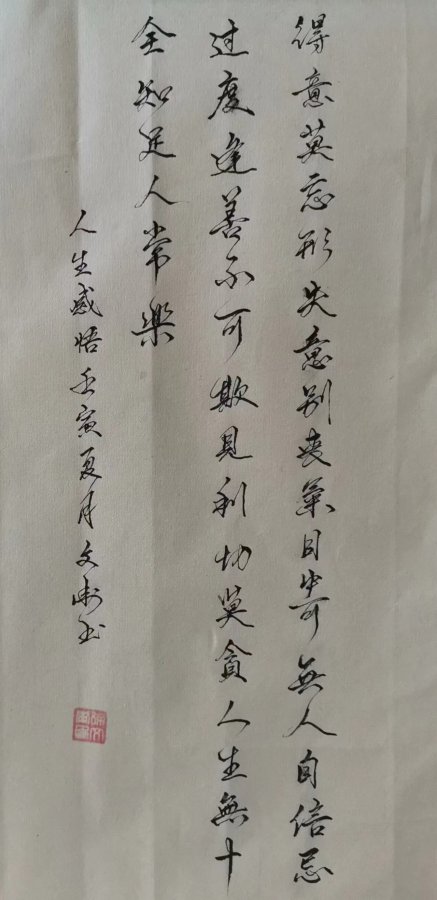 得意莫忘形失意别丧氣目带無人自信忌
过度逢善不可欺見利切莫貪人生無十
全知足人常樂
人生感悟壬寅夏月文彬书